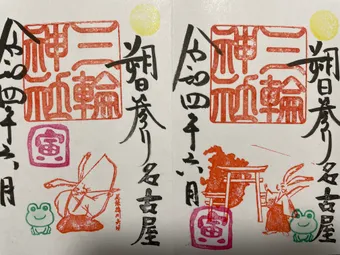 朔日参り名古屋
三輪
神社
寅
令和四年六月
朔日参り名古屋
三輪
神社
寅
令和四年六月